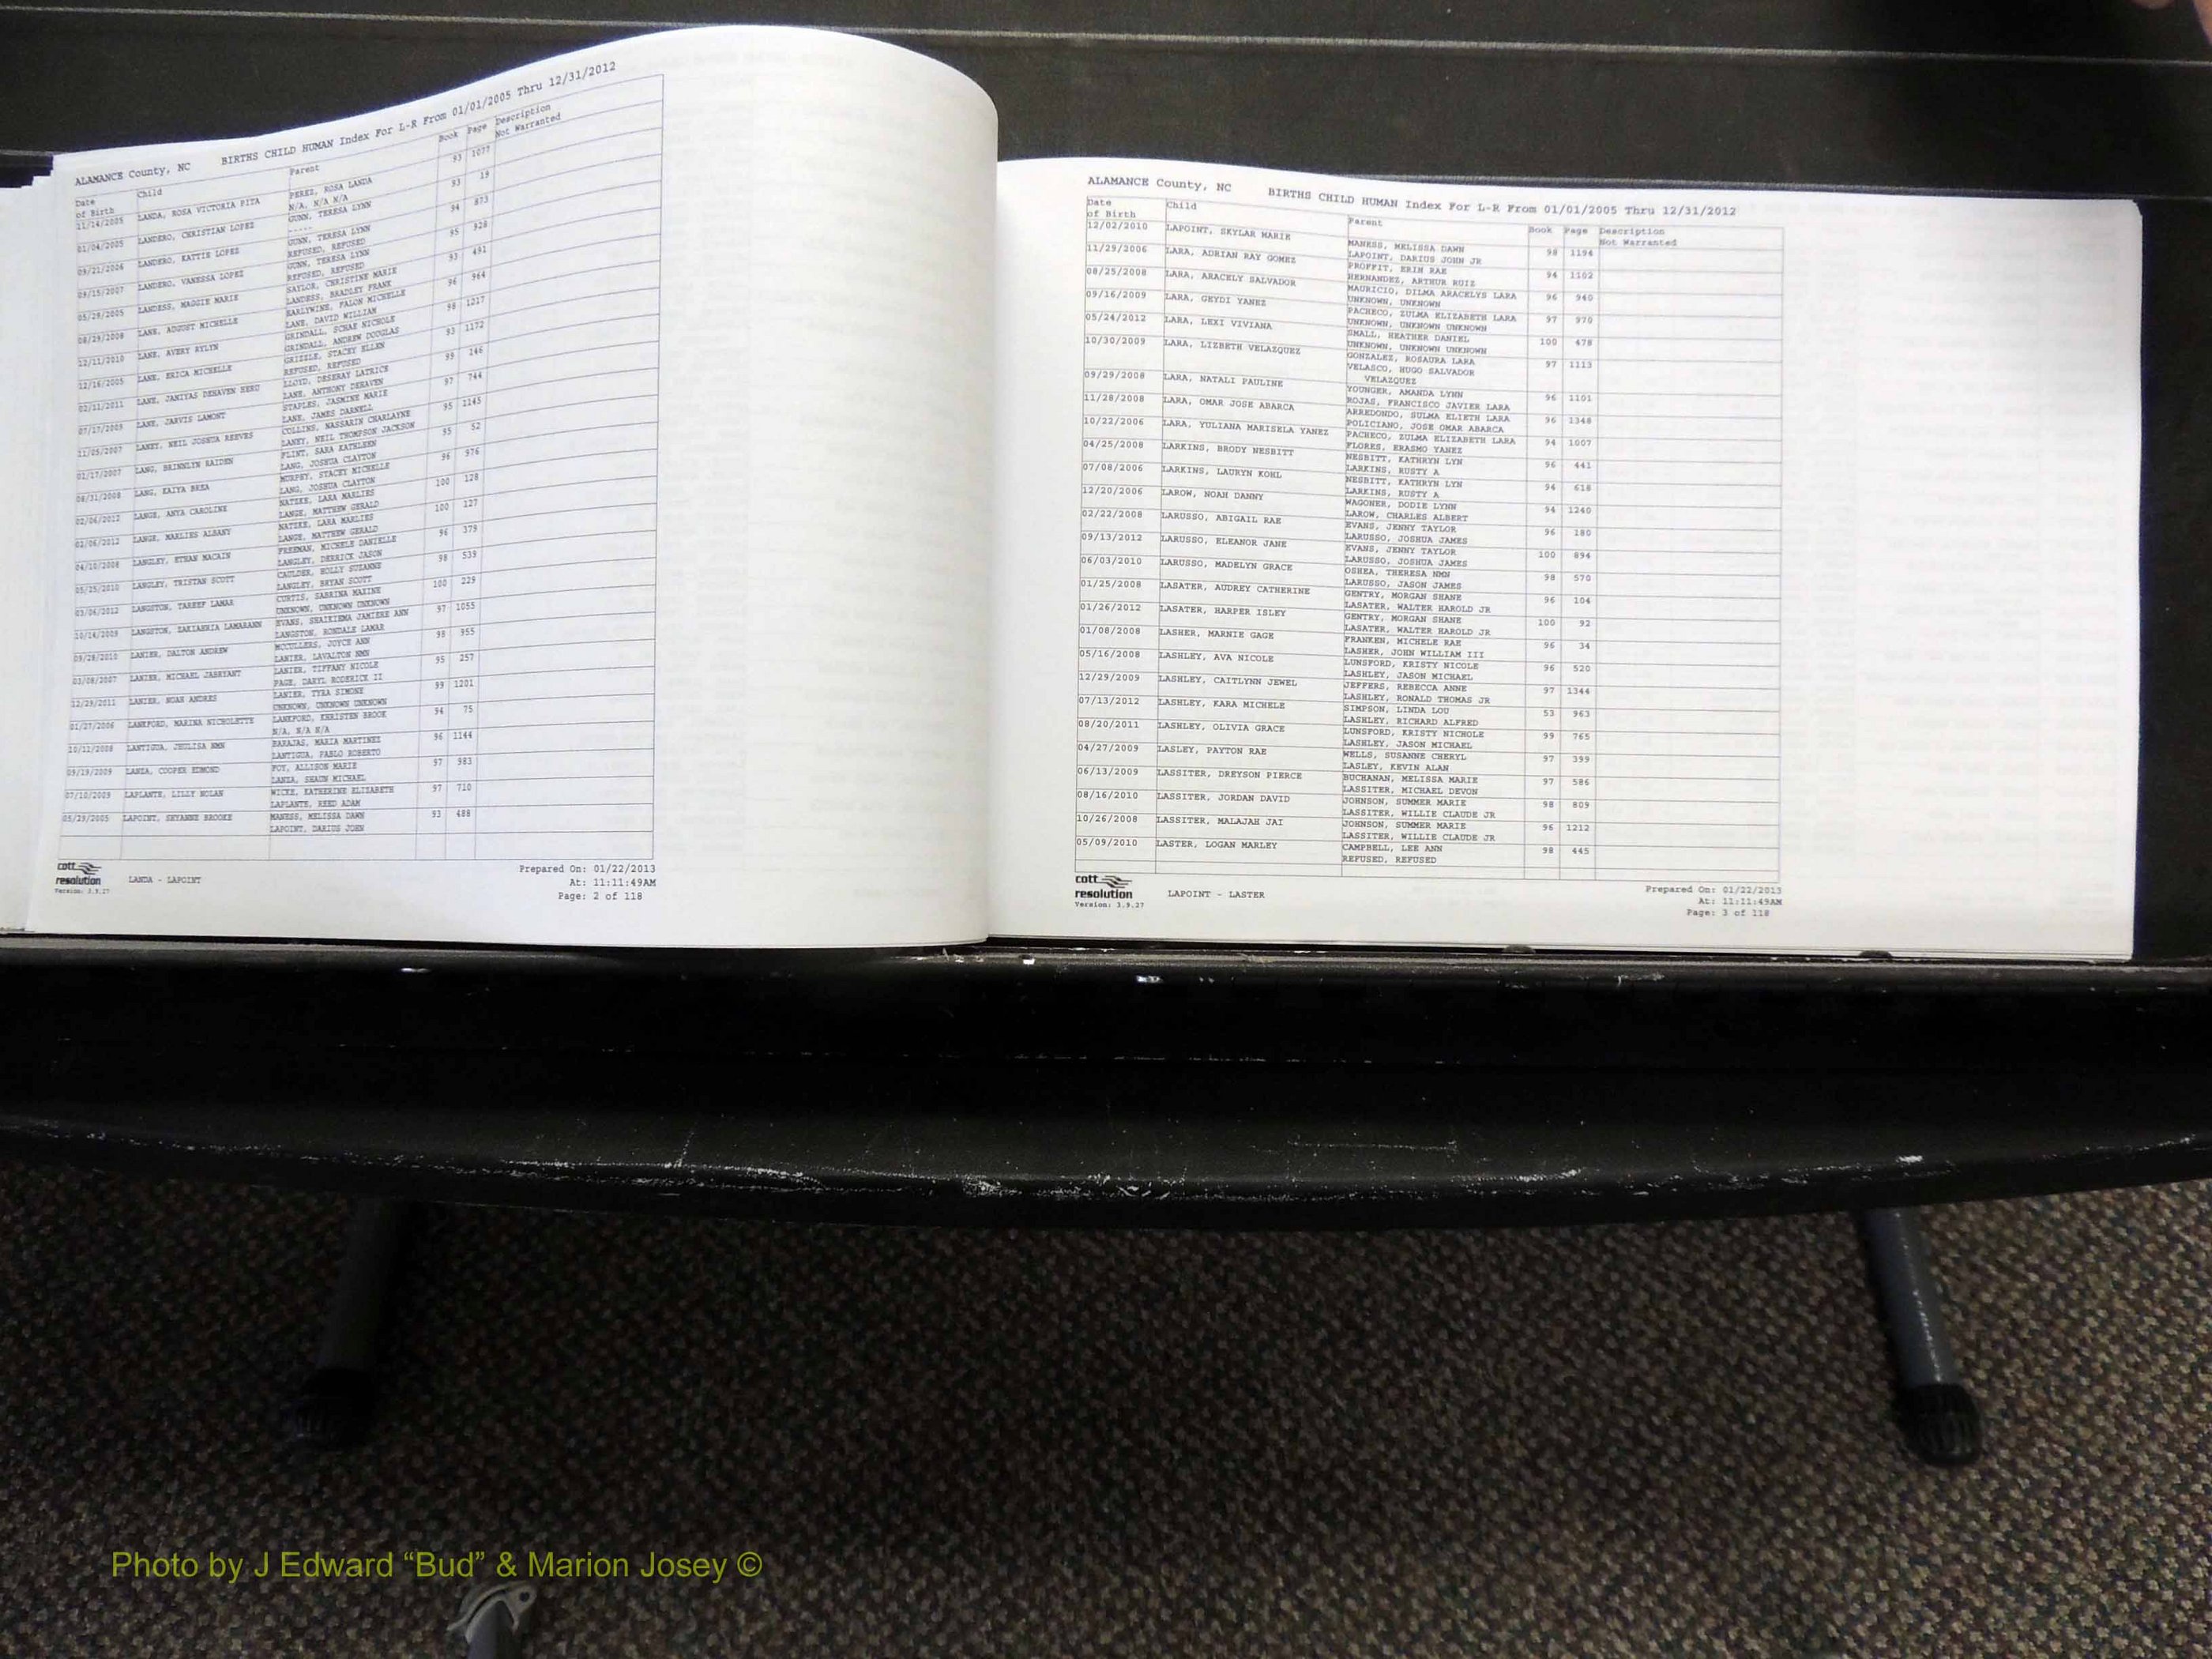 ALAMANCE County, NC BIRTHS CHILD HUMAN Index For L-R From 01/01/2005 Thru 12/31/2012
Date of Birth Child Parent Book Page Description Not Warranted
11/14/2005 LANDA, ROSA VICTORIA PITA PEREZ, ROSA LANDA 93 1077
N/A, N/A N/A
01/04/2005 LANDERO, CHRISTIAN LOPEZ GUNN, TERESA LYNN 93 19
-----
09/21/2006 LANDERO, KATTIE LOPEZ GUNN, TERESA LYNN 94 873
REFUSED, REFUSED
09/15/2007 LANDERO, VANESSA LOPEZ GUNN, TERESA LYNN 95 928
REFUSED, REFUSED
05/29/2005 LANDESS, MAGGIE MARIE SAYLOR, CHRISTINE MARIE 93 491
LANDESS, BRADLEY FRANK
08/29/2008 LANE, AUGUST MICHELLE EARLYWINE, FALON MICHELLE 96 964
LANE, DAVID WILLIAM
12/11/2010 LANE, AVERY RYLYN GRINDALL, SCHAE NICHOLE 98 1217
GRINDALL, ANDREW DOUGLAS
12/16/2005 LANE, ERICA MICHELLE GRIZZLE, STACEY ELLEN 93 1172
REFUSED, REFUSED
02/11/2011 LANE, JANIYAS DEHAVEN HERO LLOYD, DESERAY LATRICE 99 146
LANE, ANTHONY DEHAVEN
07/17/2009 LANE, JARVIS LAMONT STAPLES, JASMINE MARIE 97 744
LANE, JAMES DARNELL
11/05/2007 LANEY, NEIL JOSHUA REEVES COLLINS, NASSARIN CHARLAYNE 95 1145
LANEY, NEIL THOMPSON JACKSON
01/17/2007 LANG, BRINNLYN RAIDEN FLINT, SARA KATHLEEN 95 52
LANG, JOSHUA CLAYTON
08/31/2008 LANG, KAIYA BREA MURPHY, STACEY MICHELLE 96 976
LANG, JOSHUA CLAYTON
02/06/2012 LANGE, ANYA CAROLINE NATZKE, LARA MARLIES 100 128
LANGE, MATTHEW GERALD
02/06/2012 LANGE, MARLIES ALBANY NATZKE, LARA MARLIES 100 127
LANGE, MATTHEW GERALD
04/10/2008 LANGLEY, ETHAN MACAIN FREEMAN, MICHELE DANIELLE 96 379
LANGLEY, DERRICK JASON
05/25/2010 LANGLEY, TRISTAN SCOTT CAULDER, HOLLY SUZANNE 98 539
LANGLEY, BRYAN SCOTT
03/06/2012 LANGSTON, TAREEF LAMAR CURTIS, SABRINA MAXINE 100 229
UNKNOWN, UNKNOWN UNKNOWN
10/14/2009 LANGSTON, ZAKIAHRIA LAMARANN EVANS, SHAIKIEMA JAMIERE ANN 97 1055
LANGSTON, RONDALE LAMAR
09/28/2010 LANIER, DALTON ANDREW MCCULLERS, JOYCE ANN 98 955
LANIER, LAVALTON NMN
03/08/2007 LANIER, MICHAEL JABRYANT LANIER, TIFFANY NICOLE 95 257
PAGE, DARYL RODERICK II
12/29/2011 LANIER, NOAH ANDRES LANIER, TYRA SIMONE 99 1201
UNKNOWN, UNKNOWN UNKNOWN
01/27/2006 LANKFORD, MARINA NICHOLETTE LANKFORD, KHRISTEN BROOK 94 75
N/A, N/A N/A
10/11/2008 LANTIGUA, JHULISA NMN BARAJAS, MARIA MARTINEZ 96 1144
LANTIGUA, PABLO ROBERTO
09/19/2009 LANZA, COOPER EDMOND FOY, ALLISON MARIE 97 983
LANZA, SHAUN MICHAEL
07/10/2009 LAPLANTE, LILLY NOLAN WICKE, KATHERINE ELIZABETH 97 710
LAPLANTE, REED ADAM
05/29/2005 LAPOINT, SHYANNE BROOKE MANESS, MELISSA DAWN 93 488
LAPOINT, DARIUS JOHN
cott resolution
Version: 3.9.27
LANDA - LAPOINT
Prepared On: 01/22/2013
At: 11:11:49AM
Page: 2 of 118
ALAMANCE County, NC BIRTHS CHILD HUMAN Index For L-R From 01/01/2005 Thru 12/31/2012
Date of Birth Child Parent Book Page Description Not Warranted
12/02/2010 LAPOINT, SKYLAR MARIE MANESS, MELISSA DAWN 98 1194
LAPOINT, DARIUS JOHN JR
11/29/2006 LARA, ADRIAN RAY GOMEZ PROFFIT, ERIN RAE 94 1102
HERNANDEZ, ARTHUR RUIZ
08/25/2008 LARA, ARACELY SALVADOR MAURICIO, DILMA ARACELYS LARA 96 940
UNKNOWN, UNKNOWN
09/16/2009 LARA, GEYDI YANEZ PACHECO, ZULMA ELIZABETH LARA 97 970
UNKNOWN, UNKNOWN UNKNOWN
05/24/2012 LARA, LEXI VIVIANA SMALL, HEATHER DANIEL 100 478
UNKNOWN, UNKNOWN UNKNOWN
10/30/2009 LARA, LIZBETH VELAZQUEZ GONZALEZ, ROSAURA LARA 97 1113
VELASCO, HUGO SALVADOR
VELAZQUEZ
09/29/2008 LARA, NATALI PAULINE YOUNGER, AMANDA LYNN 96 1101
ROJAS, FRANCISCO JAVIER LARA
11/28/2008 LARA, OMAR JOSE ABARCA ARREDONDO, SULMA ELIETH LARA 96 1348
POLICIANO, JOSE OMAR ABARCA
10/22/2006 LARA, YULIANA MARISELA YANEZ PACHECO, ZULMA ELIZABETH LARA 94 1007
FLORES, ERASMO YANEZ
04/25/2008 LARKINS, BRODY NESBITT NESBITT, KATHRYN LYN 96 441
LARKINS, RUSTY A
07/08/2006 LARKINS, LAURYN KOHL NESBITT, KATHRYN LYN 94 618
LARKINS, RUSTY A
12/20/2006 LAROW, NOAH DANNY WAGONER, DODIE LYNN 94 1240
LAROW, CHARLES ALBERT
02/22/2008 LARUSSO, ABIGAIL RAE EVANS, JENNY TAYLOR 96 180
LARUSSO, JOSHUA JAMES
09/13/2012 LARUSSO, ELEANOR JANE EVANS, JENNY TAYLOR 100 894
LARUSSO, JOSHUA JAMES
06/03/2010 LARUSSO, MADELYN GRACE OSHEA, THERESA NMN 98 570
LARUSSO, JASON JAMES
01/25/2008 LASATER, AUDREY CATHERINE GENTRY, MORGAN SHANE 96 104
LASATER, WALTER HAROLD JR
01/26/2012 LASATER, HARPER ISLEY GENTRY, MORGAN SHANE 100 92
LASATER, WALTER HAROLD JR
01/08/2008 LASHER, MARNIE GAGE FRANKEN, MICHELE RAE 96 34
LASHER, JOHN WILLIAM III
05/16/2008 LASHLEY, AVA NICOLE LUNSFORD, KRISTY NICOLE 96 520
LASHLEY, JASON MICHAEL
12/29/2009 LASHLEY, CAITLYNN JEWEL JEFFERS, REBECCA ANNE 97 1344
LASHLEY, RONALD THOMAS JR
07/13/2012 LASHLEY, KARA MICHELE SIMPSON, LINDA LOU 53 963
LASHLEY, RICHARD ALFRED
08/20/2011 LASHLEY, OLIVIA GRACE LUNSFORD, KRISTY NICHOLE 99 765
LASHLEY, JASON MICHAEL
04/27/2009 LASLEY, PAYTON RAE WELLS, SUSANNE CHERYL 97 399
LASLEY, KEVIN ALAN
06/13/2009 LASSITER, DREYSON PIERCE BUCHANAN, MELISSA MARIE 97 586
LASSITER, MICHAEL DEVON
08/16/2010 LASSITER, JORDAN DAVID JOHNSON, SUMMER MARIE 98 809
LASSITER, WILLIE CLAUDE JR
10/26/2008 LASSITER, MALAJAH JAI JOHNSON, SUMMER MARIE 96 1212
LASSITER, WILLIE CLAUDE JR
05/09/2010 LASTER, LOGAN MARLEY CAMPBELL, LEE ANN 98 445
REFUSED, REFUSED
cott resolution
Version: 3.9.27
LAPOINT - LASTER
Prepared On: 01/22/2013
At: 11:11:49AM
Page: 3 of 118
Photo by J Edward “Bud” & Marion Josey ©